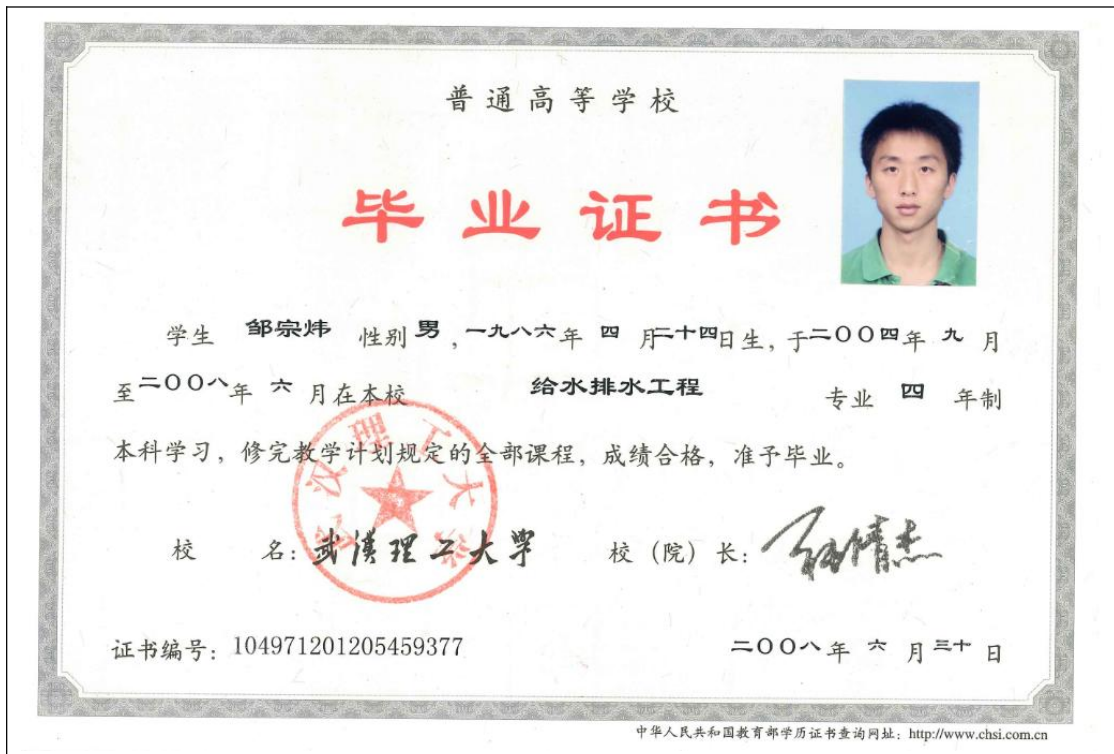 普通高等学校
毕业证书
学生 邹宗炜 性别 男，一九八六年 四 月二十四日生，于二〇〇四年 九 月
至二〇〇八年 六 月在本校 给水排水工程 专业 四 年制
本科学习，修完教学计划规定的全部课程，成绩合格，准予毕业。
武汉理工大学
校 名：武漢理工大學 校（院）长：
证书编号：104971201205459377 二〇〇八年 六 月三十日
中华人民共和国教育部学历证书查询网址：http://www.chsi.com.cn